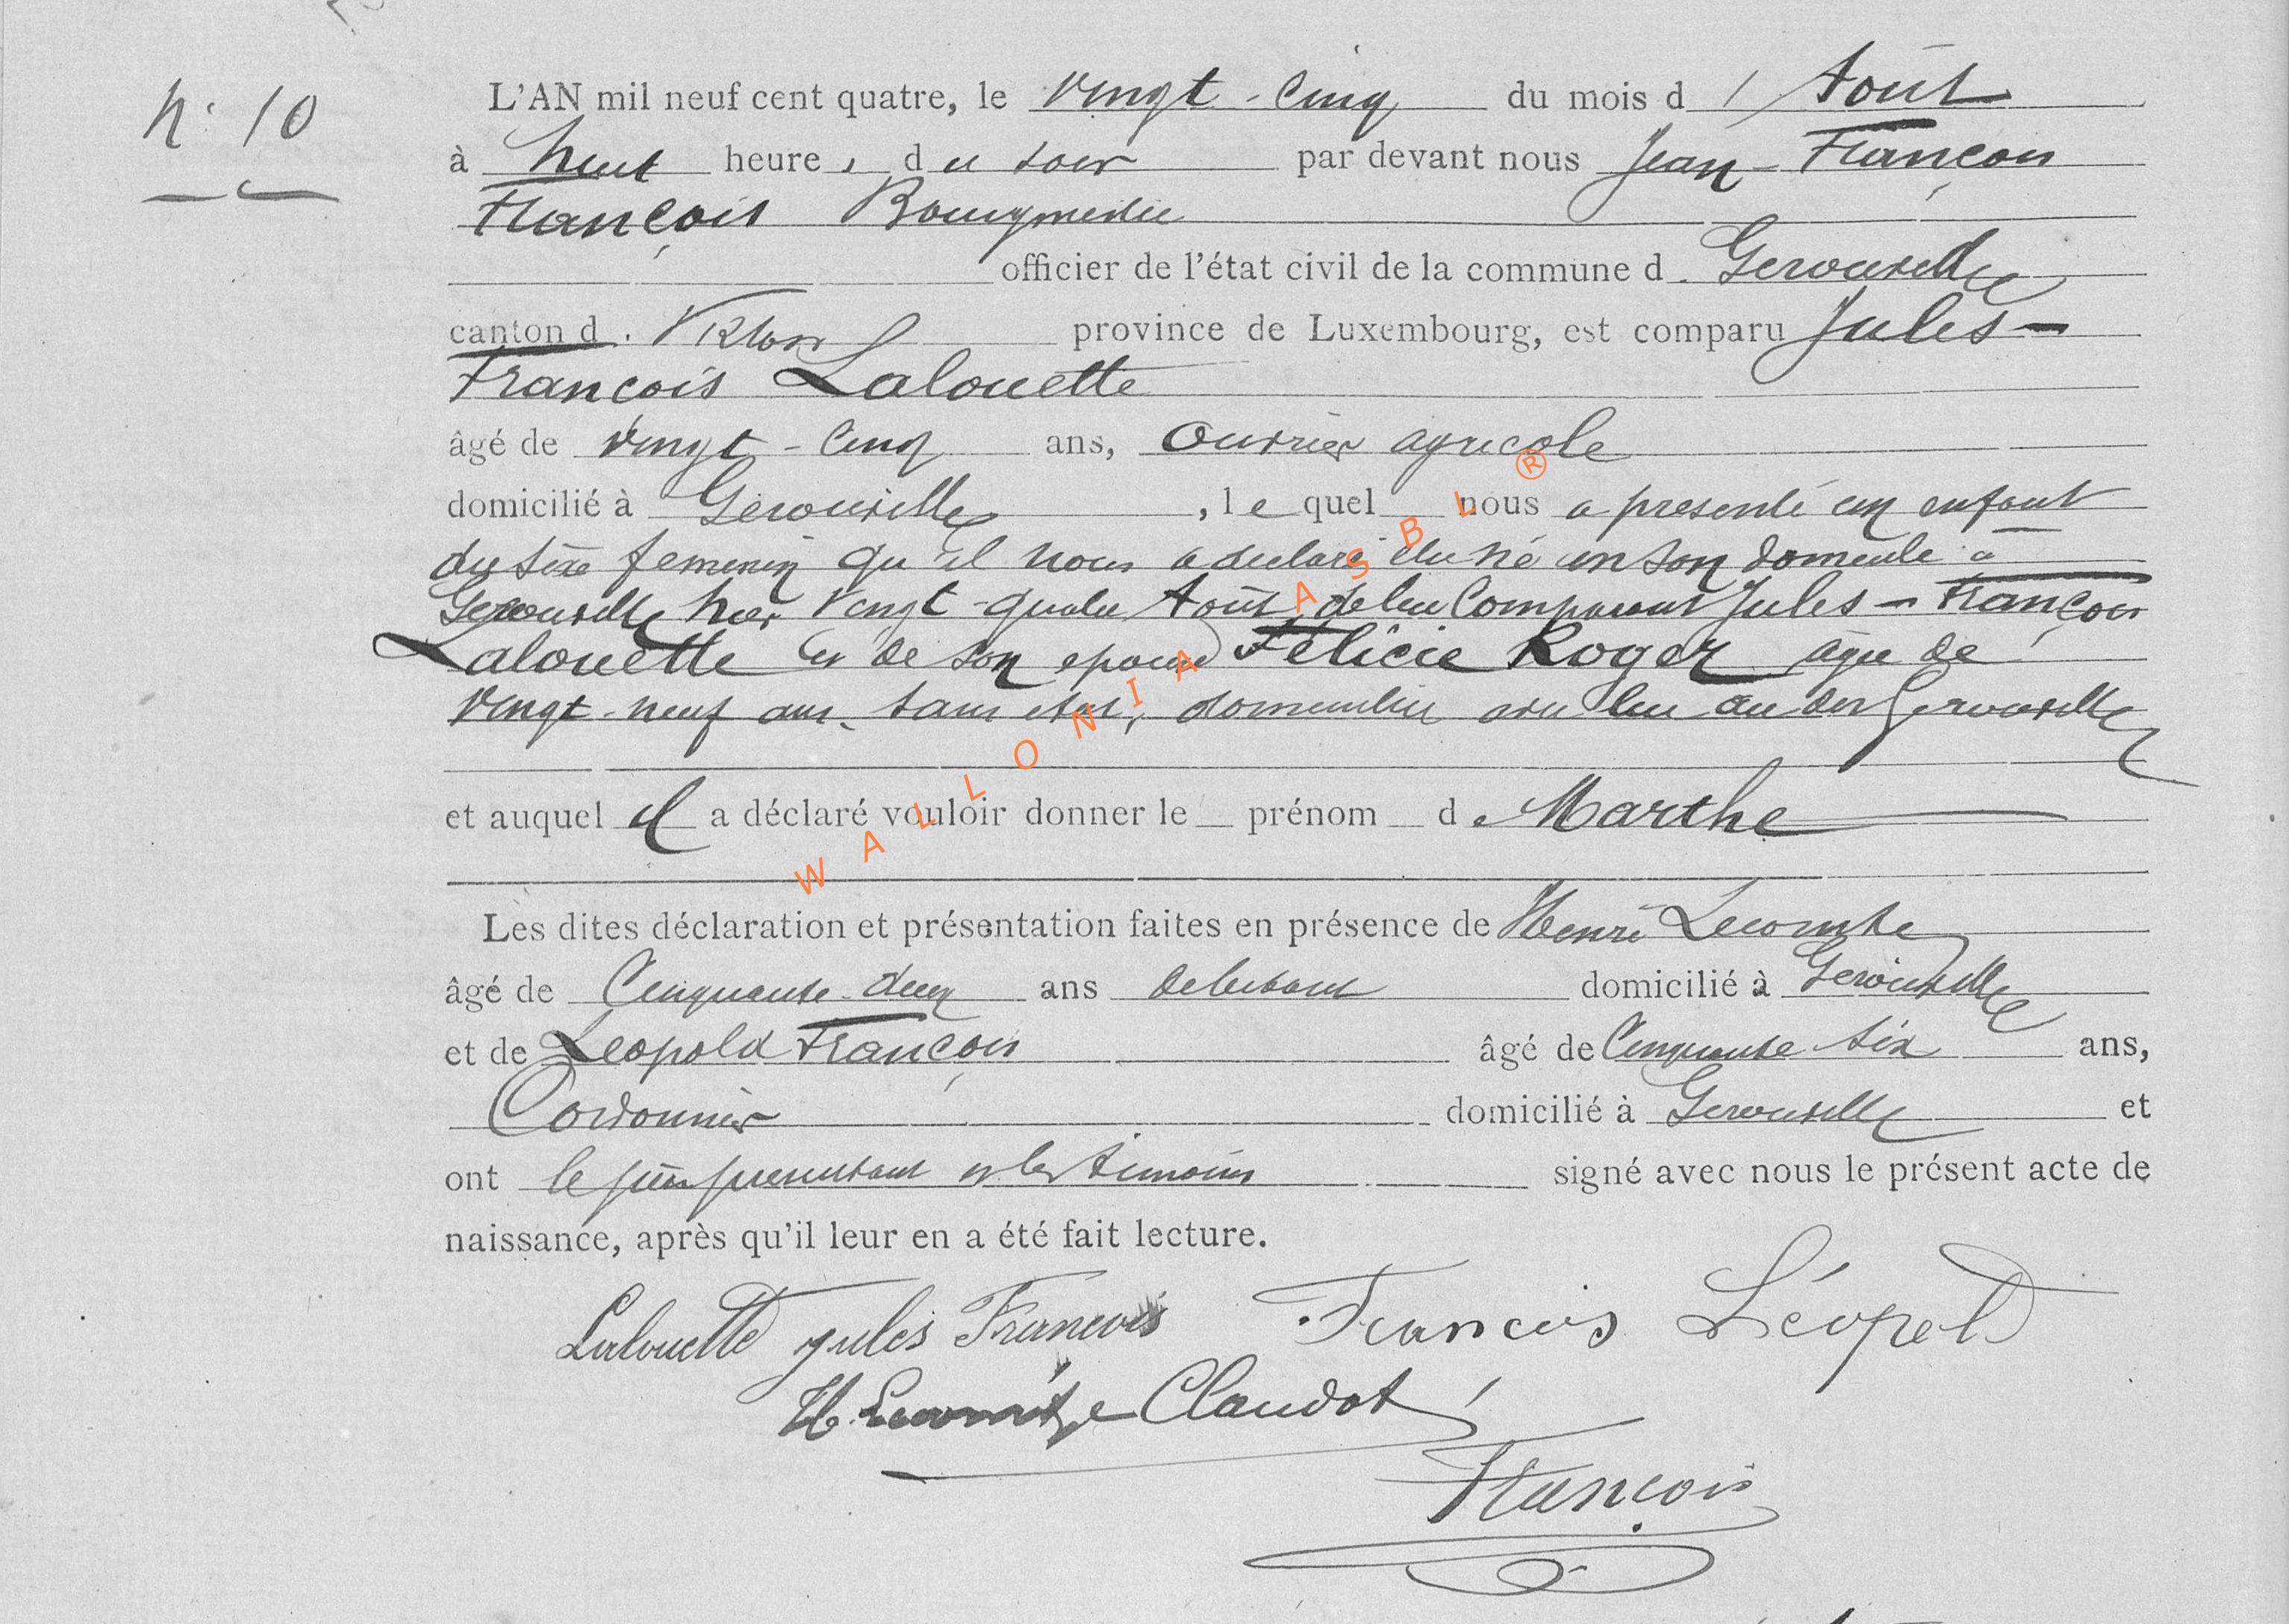 N° 10
L'AN mil neuf cent quatre, le vingt-cinq du mois d' Août
à huit heures, du soir par devant nous Jean-François
François Bourgmestre
officier de l'état civil de la commune d. Gerouville
canton d. Virton province de Luxembourg, est comparu Jules-
François Lalouette
âgé de vingt-cinq ans, Ouvrier agricole
domicilié à Gerouville, lequel nous a presenté un enfant
du sexe feminin qu'il nous a declaré être né en son domicile à
Gerouville hier vingt-quatre Août, de lui Comparant Jules-François
Lalouette et de son epouse Félicie Roger agée de
vingt-neuf ans, sans etat, domiciliée avec lui au dit Gerouville
et auquel il a déclaré vouloir donner le prénom de Marthe
Les dites déclaration et présentation faites en présence de Henri Lecomte
âgé de Cinquante-deux ans debitant domicilié à Gerouville
et de Leopold François âgé de Cinquante six ans,
Cordonnier domicilié à Gerouville et
ont le père presentant et les temoins signé avec nous le présent acte de
naissance, après qu'il leur en a été fait lecture.
Lalouette jules François Francois Léopold
H. Lecomte Claudot
François
WALLONIA ASBL ®